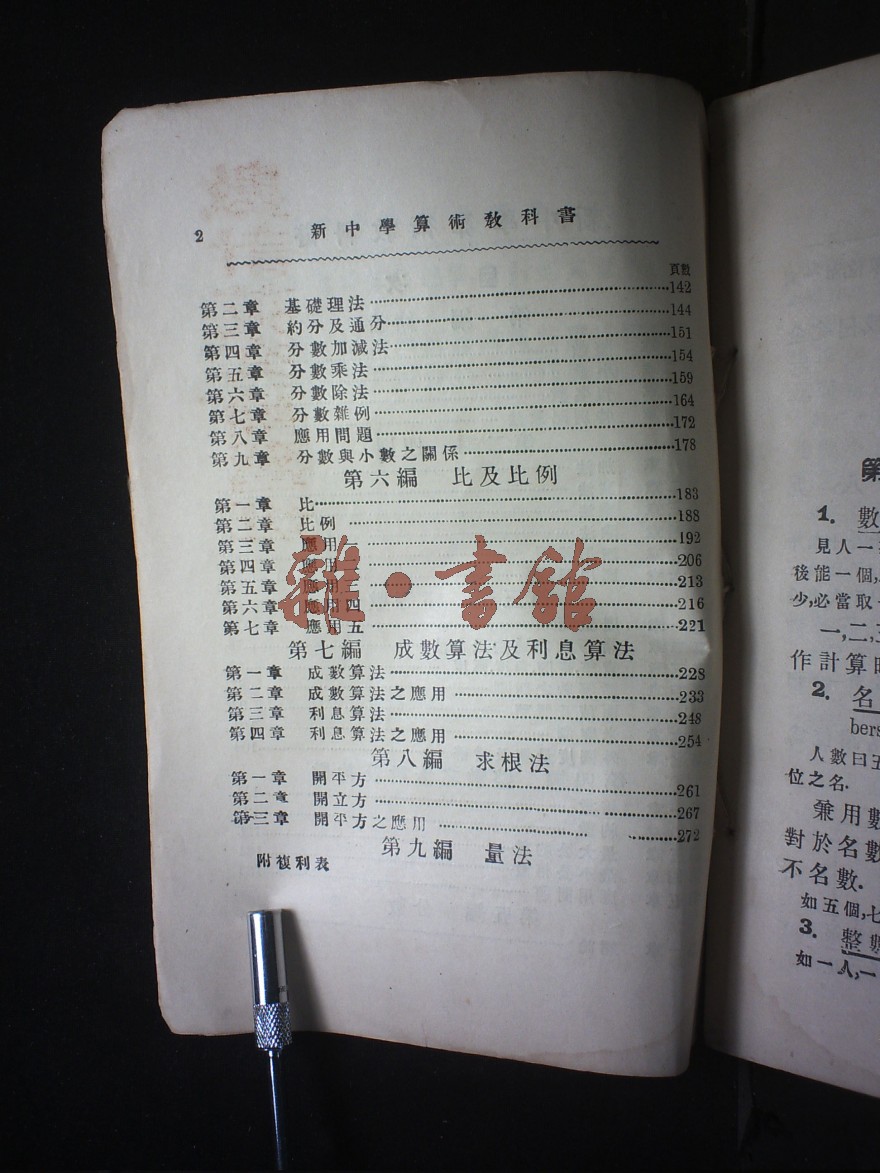 2 新中學算術敎科書
頁數
第二章 基礎理法 142
第三章 約分及通分 144
第四章 分數加減法 151
第五章 分數乘法 154
第六章 分數除法 159
第七章 分數雜例 164
第八章 應用問題 172
第九章 分數與小數之關係 178
第六編 比及比例
第一章 比 183
第二章 比例 188
第三章 應用一 192
第四章 應用二 206
第五章 應用三 213
第六章 應用四 216
第七章 應用五 221
第七編 成數算法及利息算法
第一章 成數算法 228
第二章 成數算法之應用 233
第三章 利息算法 248
第四章 利息算法之應用 254
第八編 求根法
第一章 開平方 261
第二章 開立方 267
第三章 開平方之應用 272
第九編 量法
附複利表
雜·書館
第
1. 數
見人一
後能一個,
少,必當取
一,二,三
作計算時
2. 名
bers
人數曰五
位之名.
兼用數
對於名數
不名數.
如五個,七
3. 整數
如一人,一